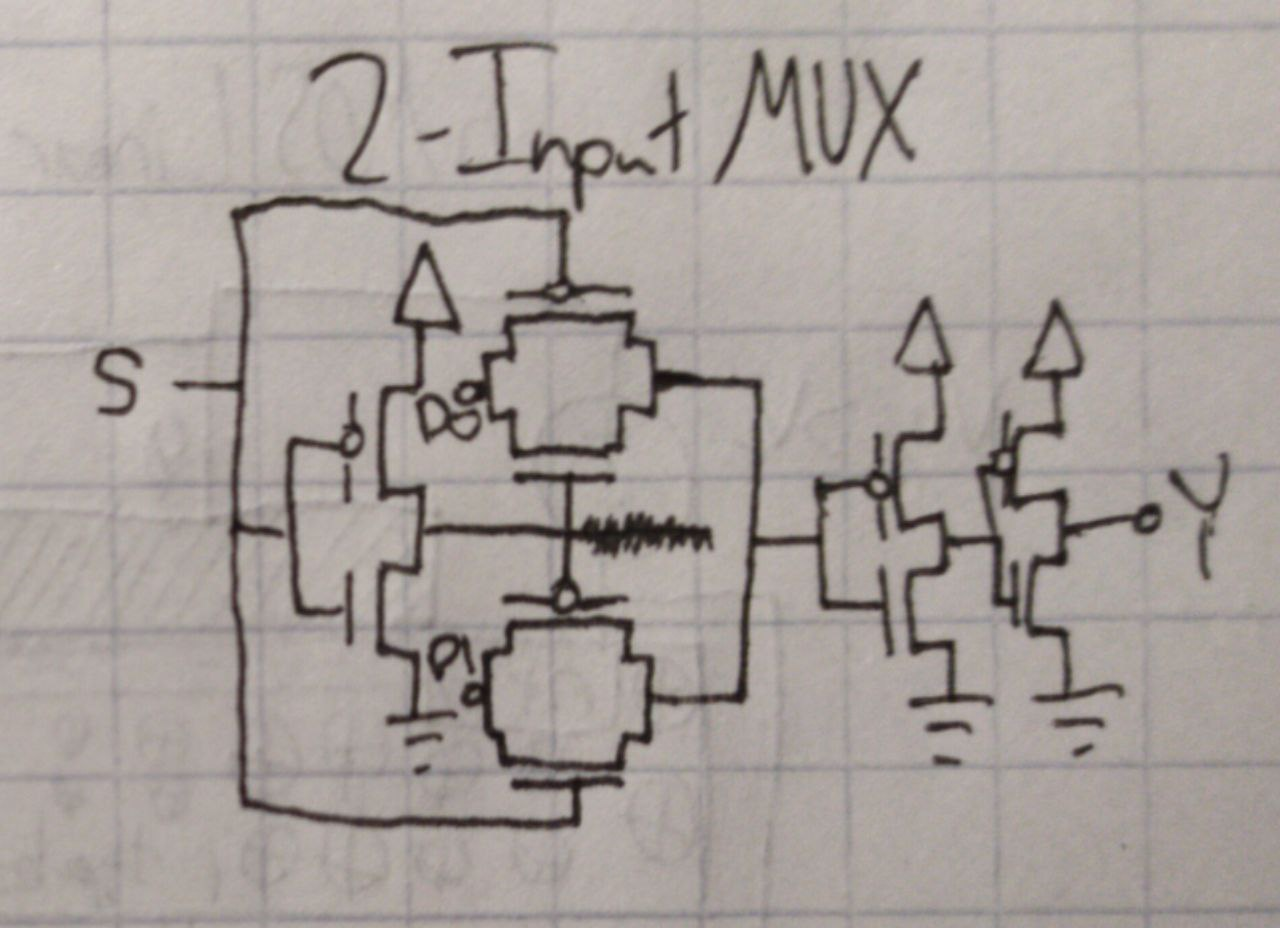 2-Input MUX
S
D0
D1
Y